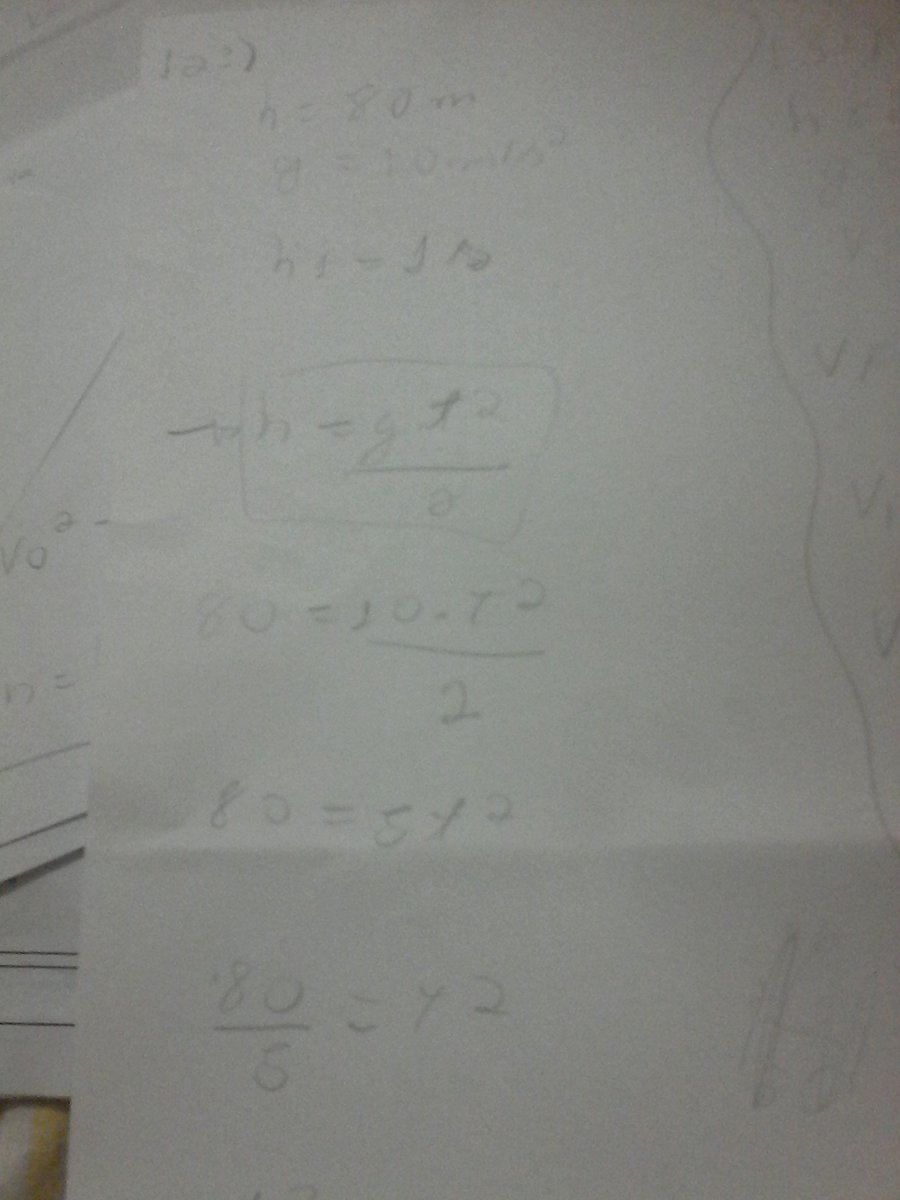 12:)
h = 80 m
g = 10 m/s²
h1 = 1s
→ h = g t²
2
80 = 10.t²
2
80 = 5t²
80 = t²
5
Vo² -
h =
h =